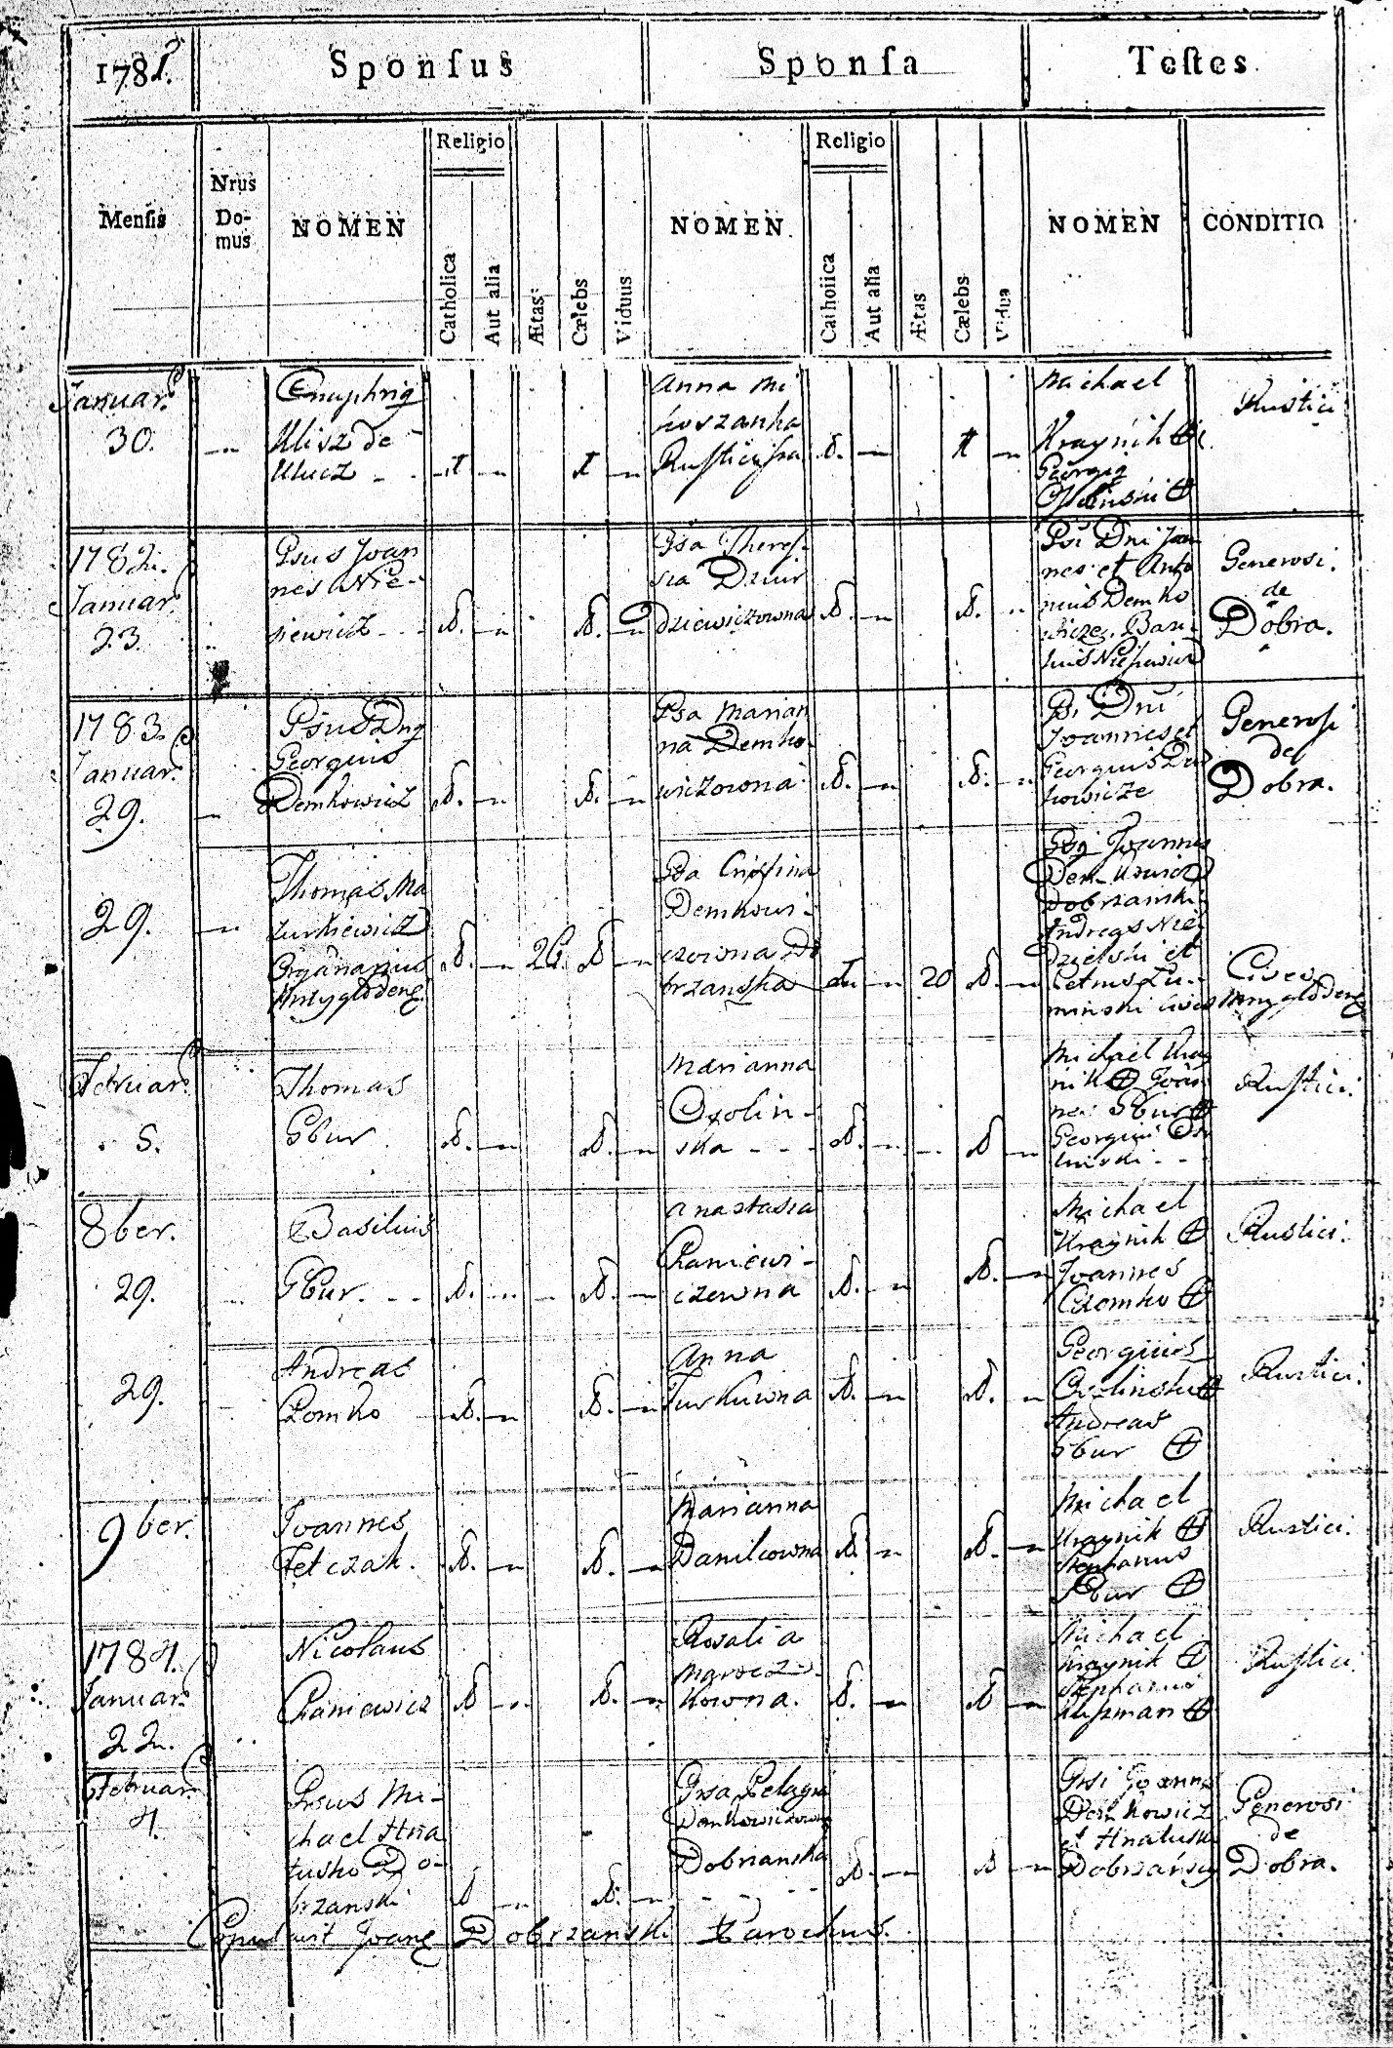 1781.
Sponſus
Sponſa
Teſtes
Menſis
Nrus Do-
mus
NOMEN
Religio
Catholica
Aut alia
Ætas
Cælebs
Viduus
NOMEN
Religio
Catholica
Aut alia
Ætas
Cælebs
Vidua
NOMEN
CONDITIO
Januar.
30.
Ulisz de
Ulucz
Anna Mi
koszanka
Michael
Kraynik
Georgig
Rustici
1782.
Januar.
23.
Psus Joan
nes Nie-
siewicz
Psa There-
sia Dziur
dziewiczowna
Psi Dni Joan
nes et Anto
nius Demko
wicze. Basi
lius
Generosi
de
Dobra.
1783.
Januar.
29.
Psus Dng
Georgius
Demkowicz
Psa Marian
na Demko-
wiczowna
Psi Dni
Joannes et
Georgius
kowicze
Generosi
de
Dobra.
29.
Thomas Ma
zurkiewicz
Organarius
Mrzygłodeng
26.
Psa Cristina
Demkowi-
czowna Do
brzanska
20
Psg Joannes
Demkowicz
Dobrzanski
Andreas Nie
dzielski et
Petrus Lu-
minski Cives
Cives
Mrzygłodeng
Februar.
5.
Thomas
Gbur
Marianna
Ozolin-
ska
Michael Kray
nik Joan
nes Gbur
Georgius
Rustici.
8ber.
29.
Basilius
Gbur.
Anastasia
Chaniewi-
czowna
Michael
Kraynik
Joannes
Czomko
Rustici.
29.
Andreas
Czomko
Anna
Turkowna
Georgius
Andreas
Gbur
Rustici.
9ber.
Joannes
Fetczak.
Marianna
Danilowna
Michael
Kraynik
Stephanus
Gbur
Rustici.
1784.
Januar.
22.
Nicolaus
Chaniewicz
Rosalia
Marocz-
kowna.
Michael
Kraynik
Stephanus
Kuszman
Rustici.
Februar.
4.
Grsus Mi-
chael Hna
tusko Do-
brzanski
Grsa Pelagia
Demkowiczowna
Dobrianska
Grsi Joannes
Demkowicz
et Hnatusko
Dobrzańscy
Generosi
de
Dobra.
Copulavit Joang Dobrzanski Parochus.